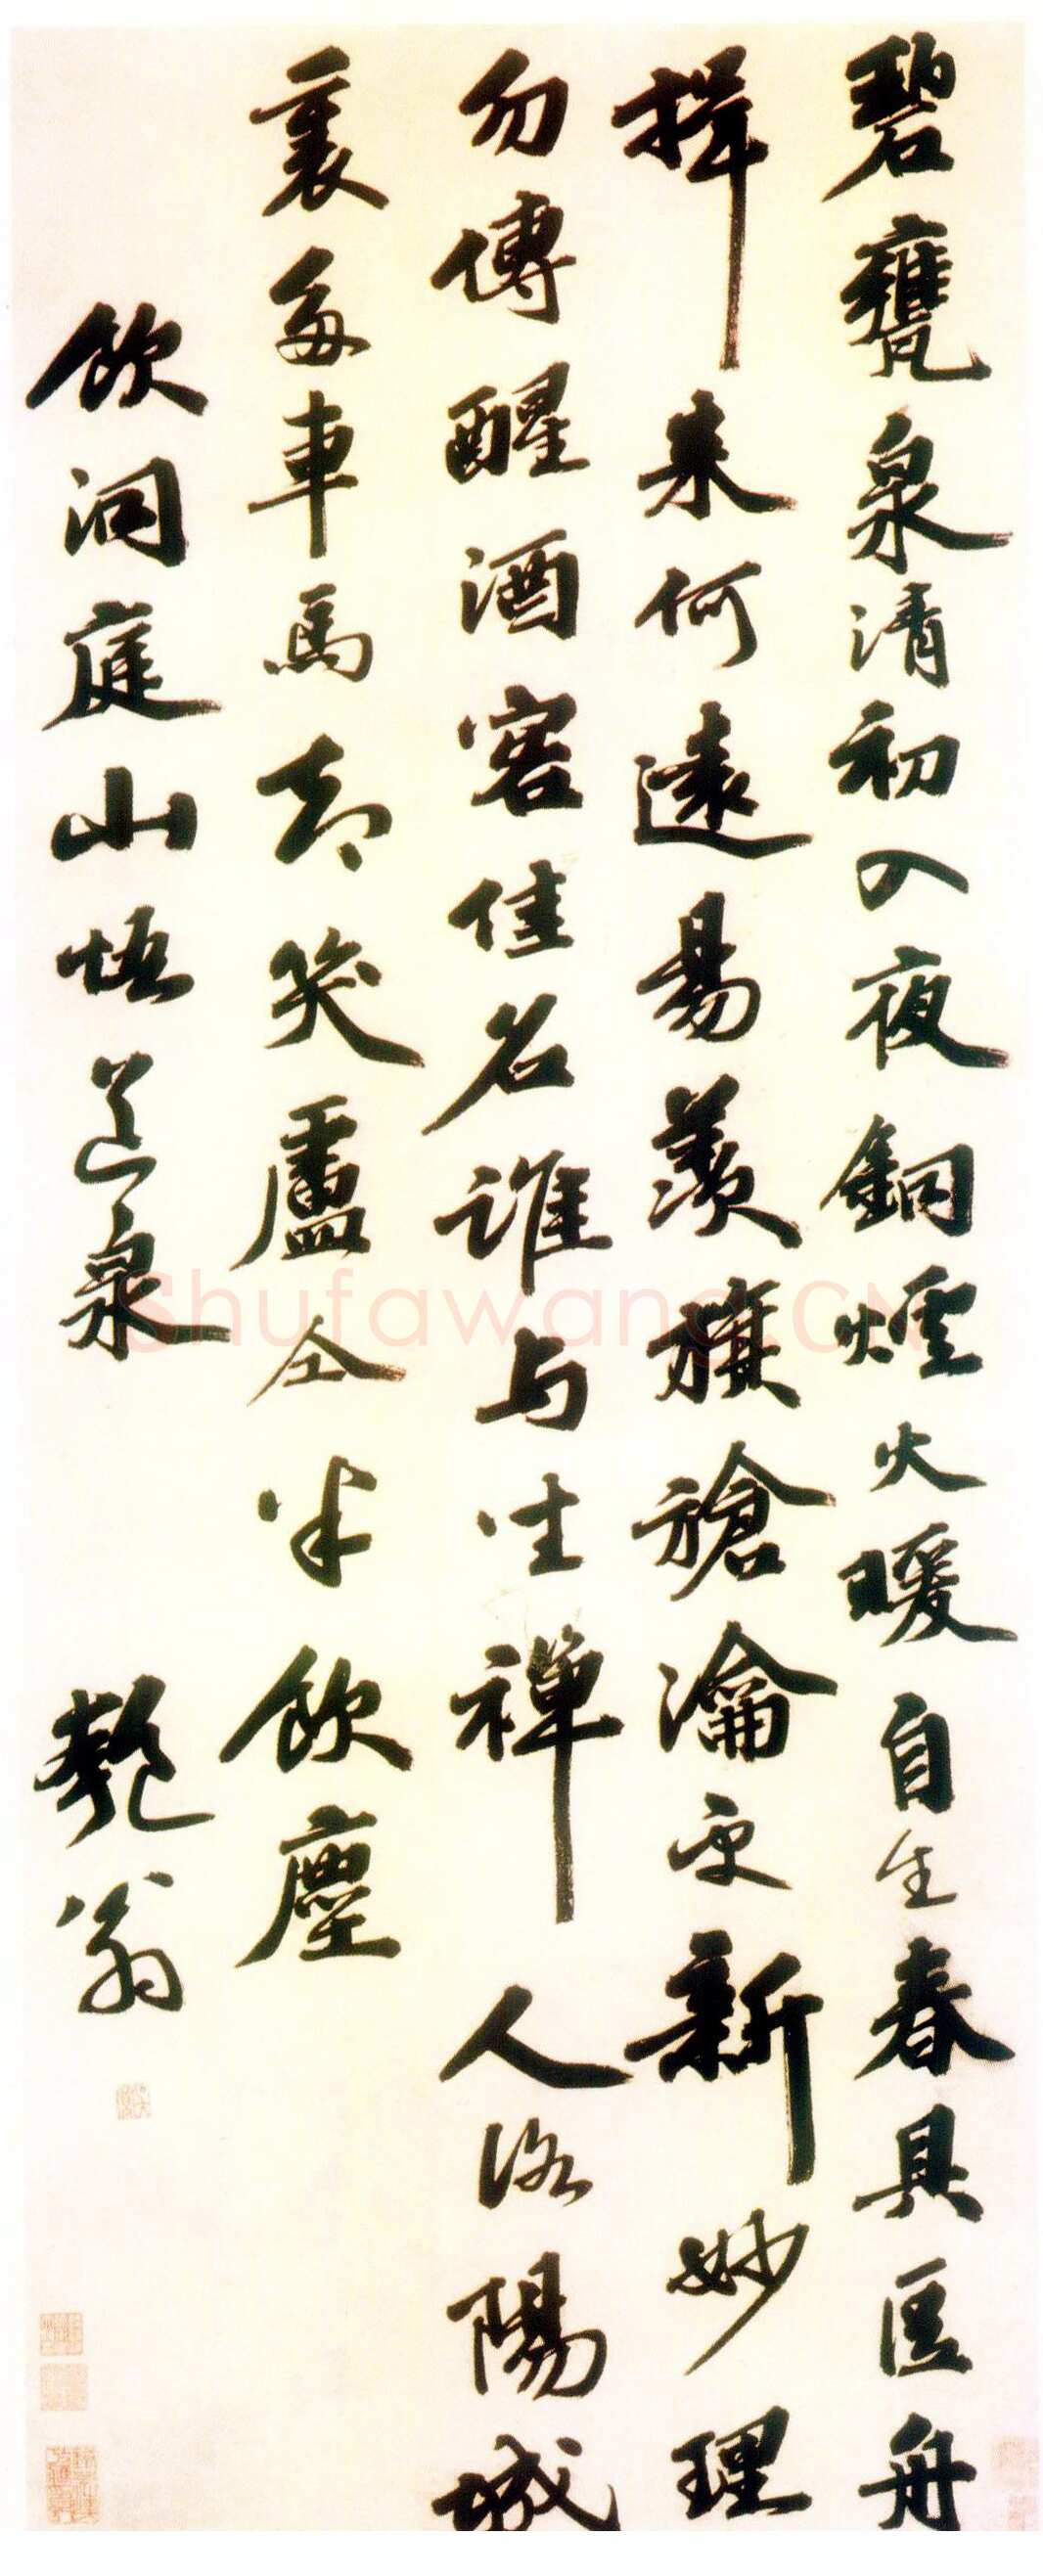 碧甕泉清初入夜銅爐火暖自生春具區舟
楫來何遠昜羨旗槍瀹更新妙理
勿傳醒酒客佳名誰与坐禪人洛陽城
裏多車馬却笑盧仝半飲塵
飲洞庭山悟道泉 匏翁
Shufawang.CN